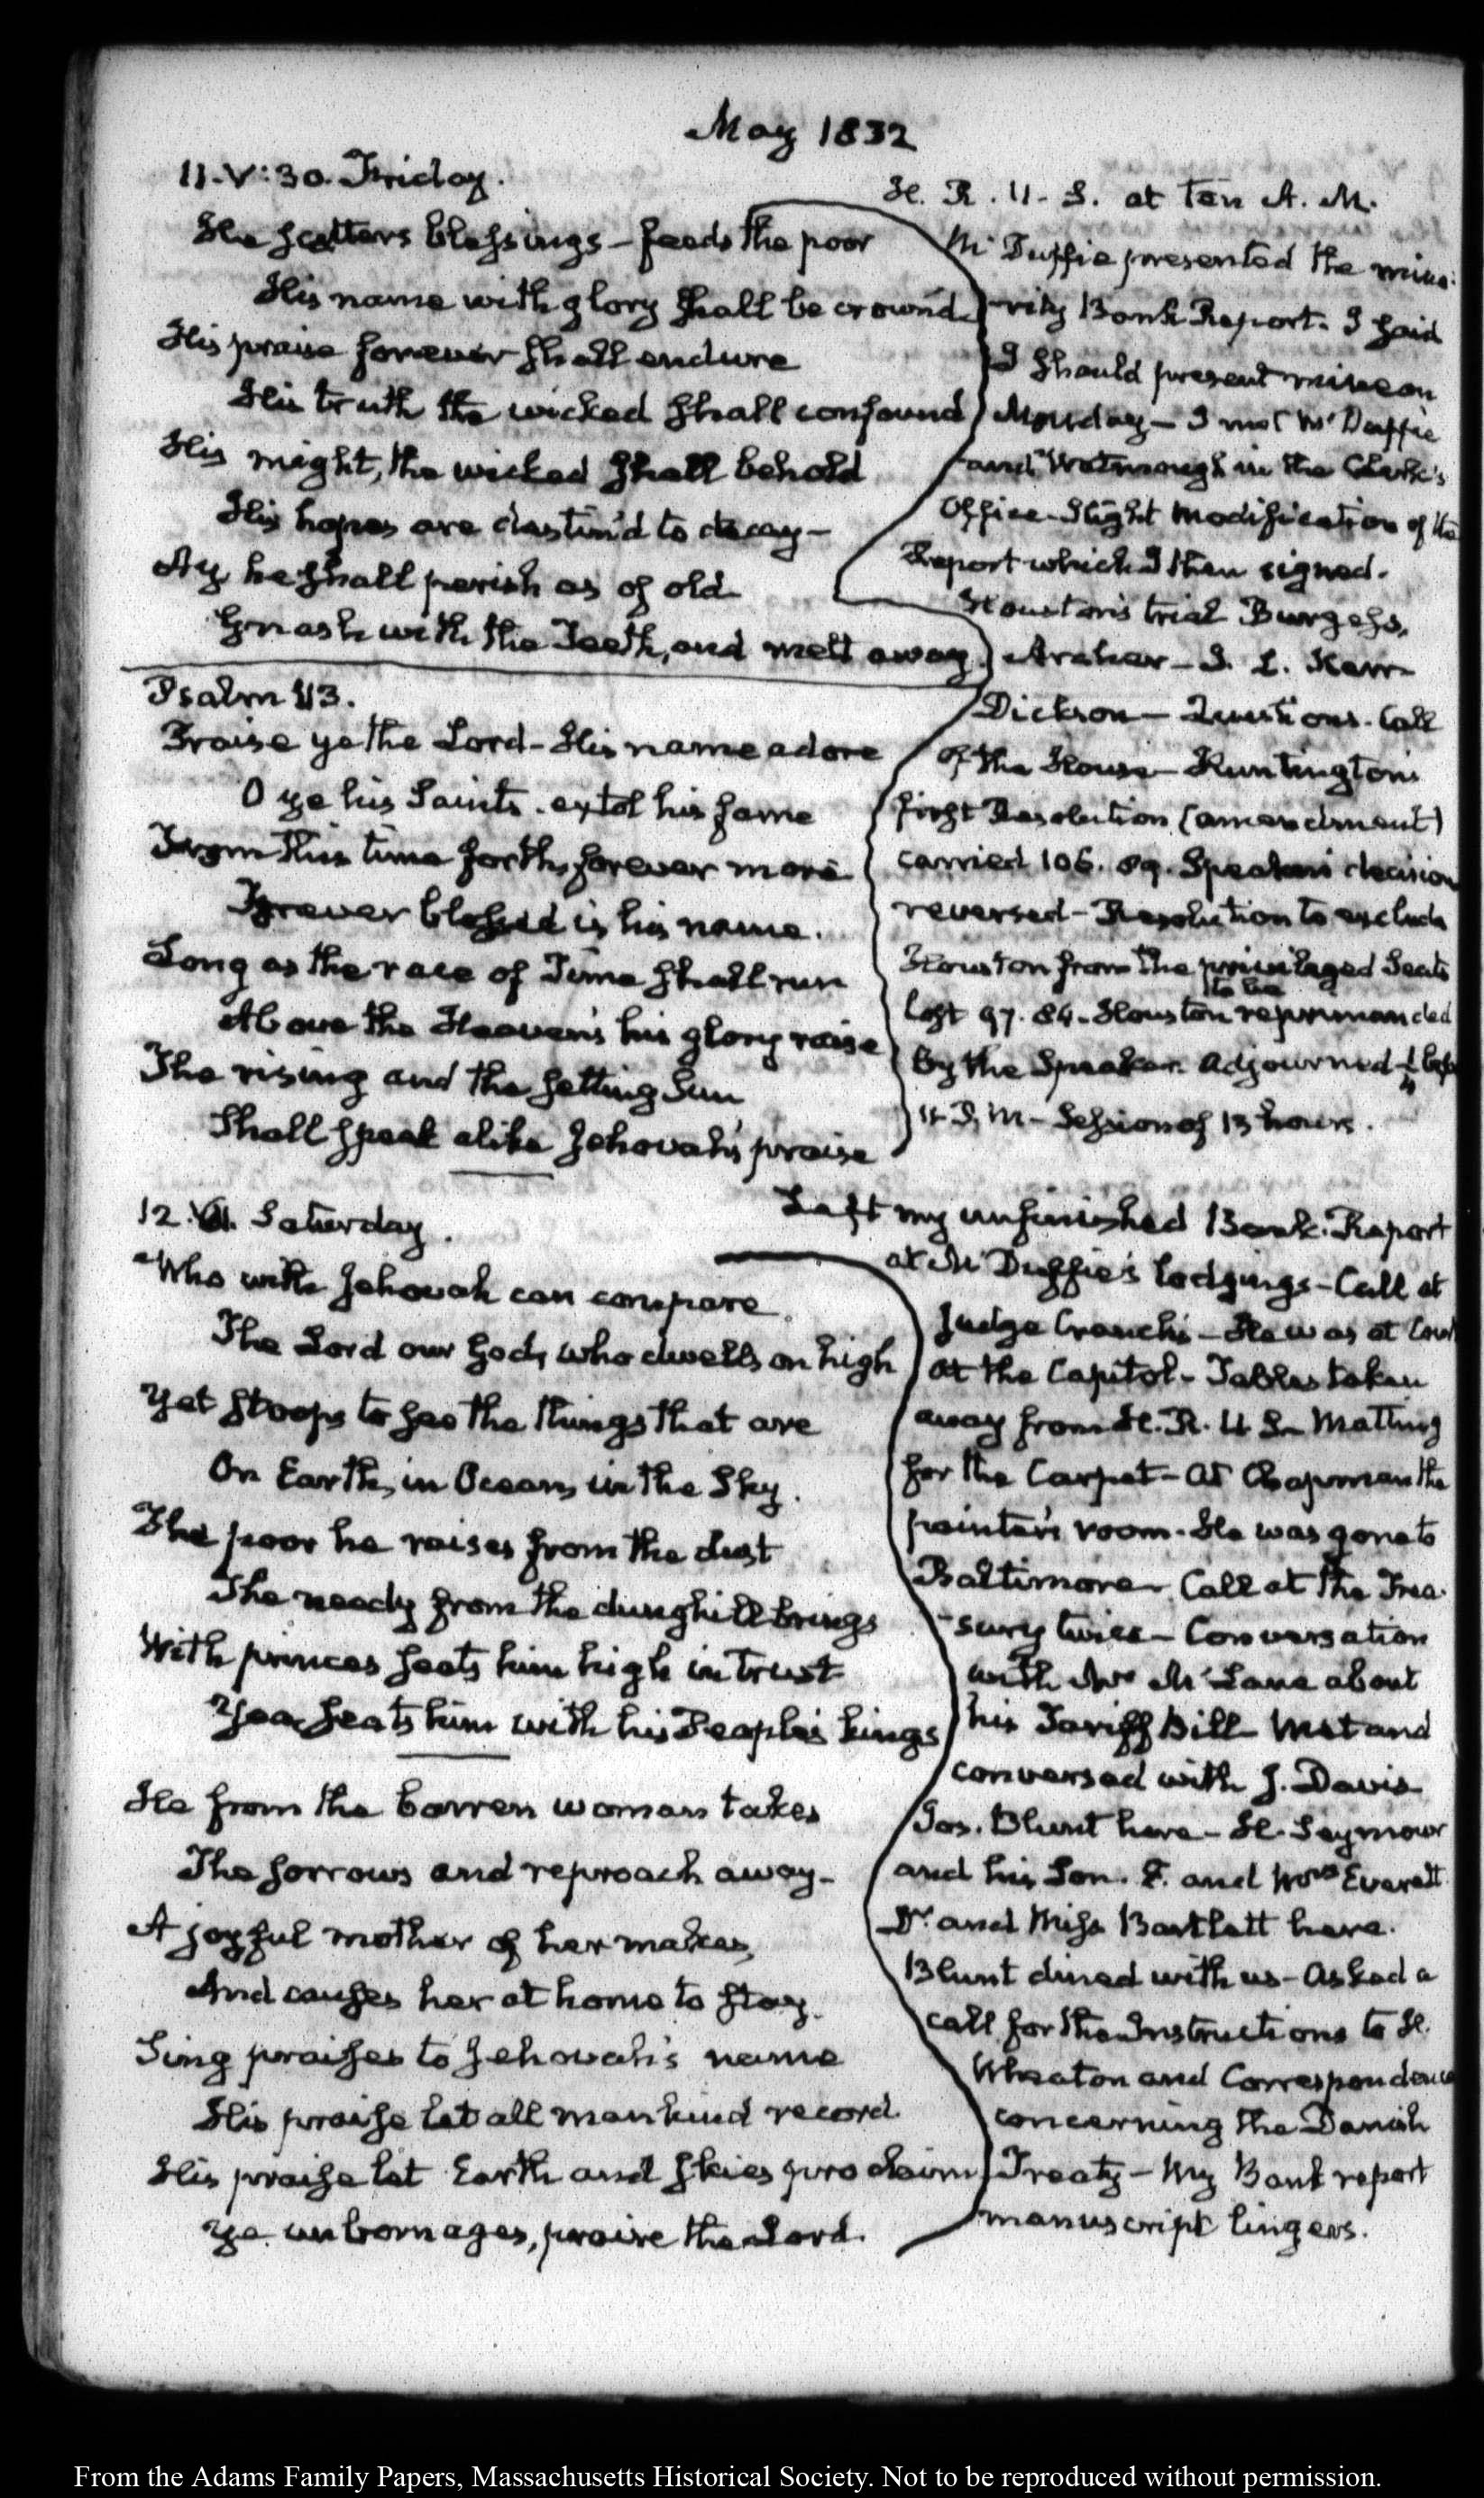 May 1832
11. V:30. Friday.
He scatters blessings - feeds the poor
His name with glory shall be crown'd
His praise forever shall endure
His truth the wicked shall confound
His might, the wicked shall behold
His hopes are destin'd to decay -
Ay he shall perish as of old
Gnash with the Teeth, and melt away.
Psalm 113.
Praise ye the Lord - His name adore
O ye his Saints. extol his fame
From this time forth, forever more
Forever blessed is his name.
Long as the race of Time shall run
Above the Heaven's his glory raise
The rising and the setting Sun
Shall speak alike Jehovah's praise
H. R. U. S. at ten A. M.
Mc Duffie presented the mino-
-rity Bank Report. I said
I should present mine on
Monday - I met Mc Duffie
and Watmough in the Clerk's
Office - Slight modification of the
Report which I then signed.
Houston's trial Burgess,
Archer - J. L. Kerr
Dickson - Questions. Call
of the House - Huntington's
first Resolution (amendment)
carried 106. 89. Speaker's decision
reversed - Resolution to exclude
Houston from the privileged Seats
lost 97. 84. Houston to be reprimanded
by the Speaker. Adjourned ¼ bef
11 P. M - Session of 13 hours.
12. VI. Saturday.
Who with Jehovah can compare
The Lord our God, who dwells on high
Yet stoops to see the things that are
On Earth, in Ocean, in the Sky.
The poor he raises from the dust
The needy from the dunghill brings
With princes seats him high in trust
Yea seats him with his People's kings
He from the barren woman takes
The sorrows and reproach away -
A joyful mother of her makes,
And causes her at home to stay.
Sing praises to Jehovah's name
His praise let all mankind record
His praise let Earth and skies proclaim
Ye unborn ages, praise the Lord.
Left my unfinished Bank Report
at Mc Duffie's lodgings - Call at
Judge Cranch's - He was at Court
at the Capitol - Tables taken
away from H. R. U S - Matting
for the Carpet - At Chapman the
painter's room - He was gone to
Baltimore. Call at the Trea-
-sury twice - Conversation
with Mr Mc Lane about
his Tariff Bill - Met and
conversed with J. Davis
Jos. Blunt here - H. Seymour
and his Son. E. and Mrs Everett
Dr and Miss Bartlett here.
Blunt dined with us - Asked a
call for the Instructions to H.
Wheaton and Correspondence
concerning the Danish
Treaty - My Bank report
manuscript lingers.
From the Adams Family Papers, Massachusetts Historical Society. Not to be reproduced without permission.